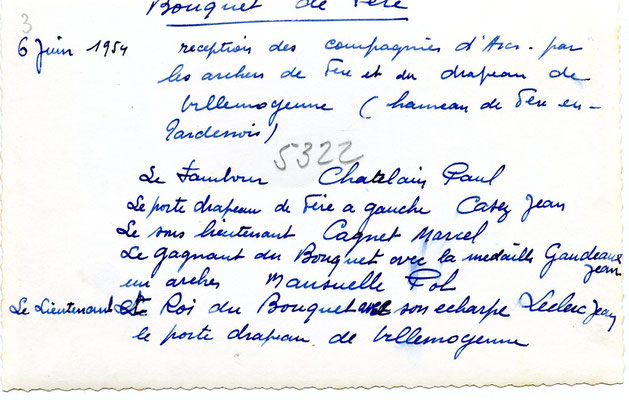 3
Bouquet de Fère
6 Juin 1954 reception des compagnies d'Arcs par
les archers de Fère et du drapeau de
Villemoyenne (hameau de Fère en-
Tardenois)
5322
Le Tambour Chatelain Paul
Le porte drapeau de Fère a gauche Casez Jean
Le sous lieutenant Cagnet Marcel
Le gagnant du Bouquet avec la medaille Gaudeaux
Jean
en archer Mansuelle Pol
Le Lieutenant et Roi du Bouquet avec son echarpe Leclerc Jean
le porte drapeau de Villemoyenne